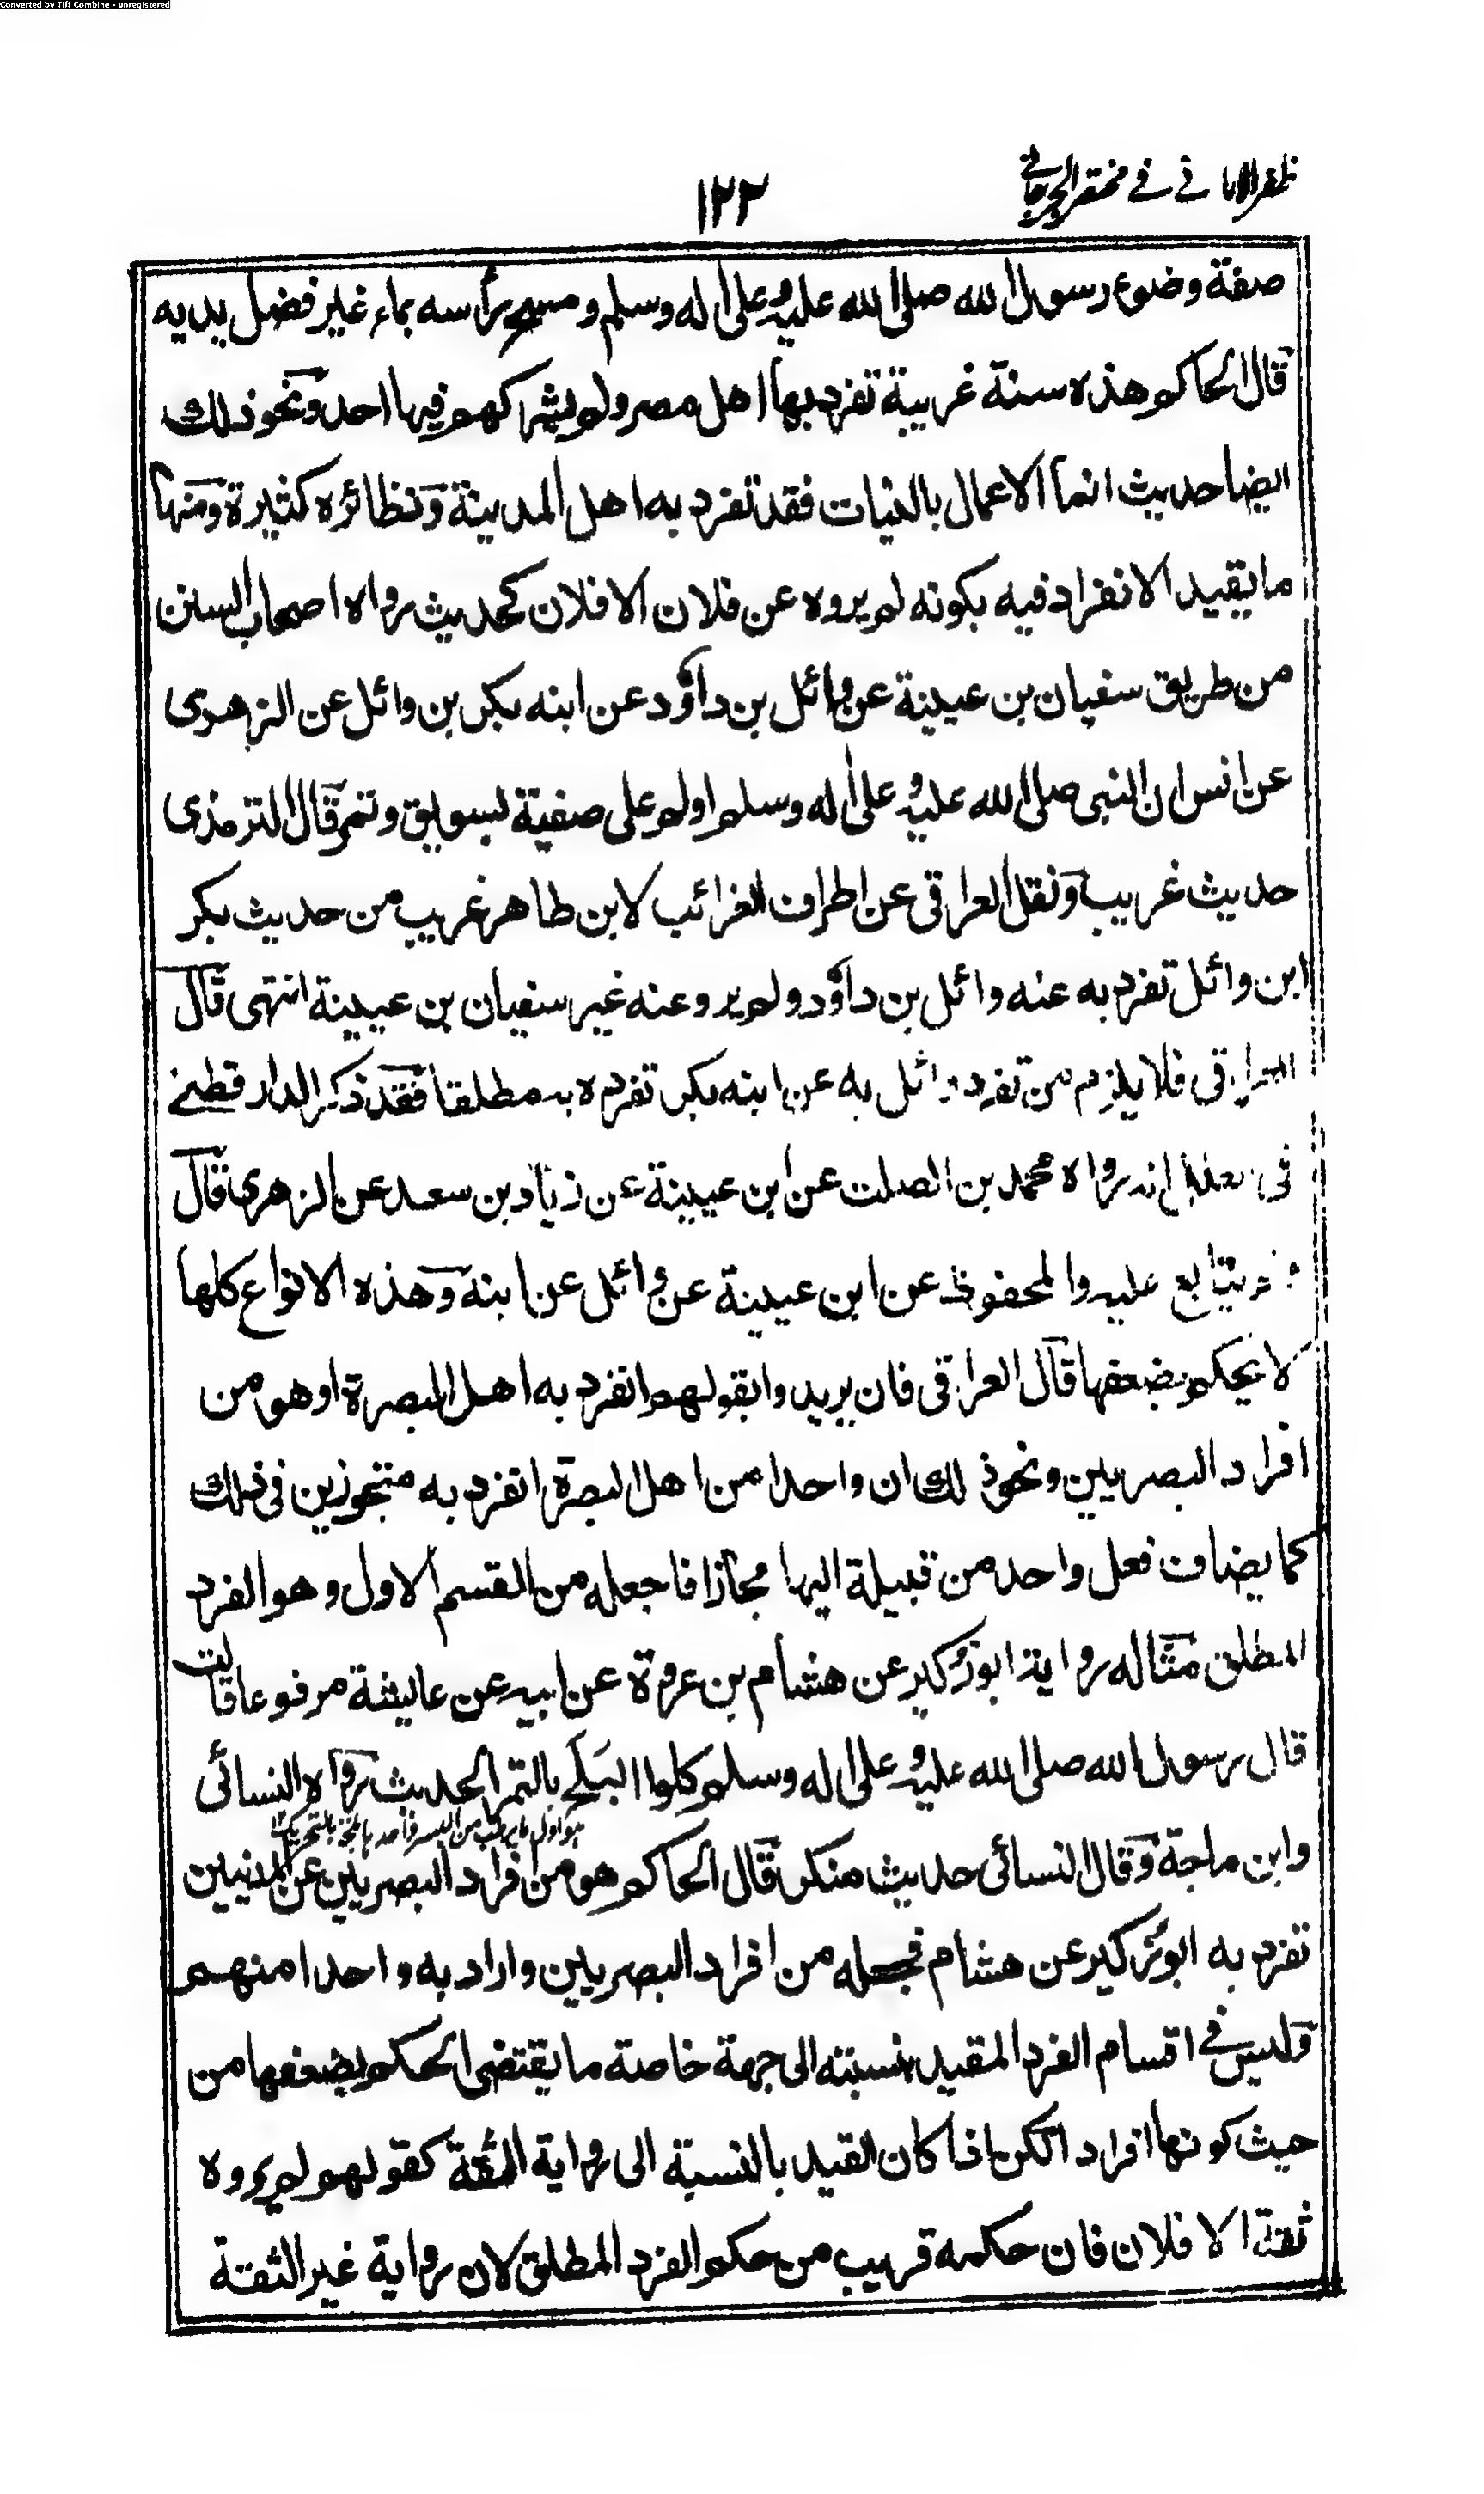 Converted by Tiff Combine - unregistered
ظفر الامانے فے مختصر الجرجانے
١٢٢
صفة وضوء رسول الله صلى الله عليه وعلى اله وسلم ومسح رأسه بماء غير فضل يديه
قال الحاكم هذه سنة غريبة تفرد بها اهل مصر ولم يشركهم فيها احد ونحو ذلك
ايضا حديث انما الاعمال بالنيات فقد تفرد به اهل المدينة ونظائره كثيرة ومنها
ما يقيد الانفراد فيه بكونه لم يروه عن فلان الا فلان كحديث رواه اصحاب السنن
من طريق سفيان بن عيينة عن وائل بن داؤد عن ابنه بكر بن وائل عن الزهرى
عن انس ان النبى صلى الله عليه وعلى اله وسلم اولم على صفية بسويق وتمر قال الترمذى
حديث غريب ونقل العراقى عن اطراف الغرائب لابن طاهر غريب من حديث بكر
ابن وائل تفرد به عنه وائل بن داؤد ولم يرو عنه غير سفيان بن عيينة انتهى قال
العراقى فلا يلزم من تفرد وائل به عن ابنه بكر تفرده به مطلقا فقد ذكر الدارقطنے
فى علله انه رواه محمد بن الصلت عن ابن عيينة عن زياد بن سعد عن الزهرى قال
ولم يتابع عليه والمحفوظ عن ابن عيينة عن وائل عن ابنه وهذه الانواع كلها
لا يحكم بضعفها قال العراقى فان يريدوا بقولهم انفرد به اهل البصرة او هو من
افراد البصريين ونحو ذلك ان واحدا من اهل البصرة انفرد به متجوزين فى ذلك
كما يضاف فعل واحد من قبيلة اليها مجازا فاجعله من القسم الاول وهو الفرد
المطلق مثاله رواية ابو زكير عن هشام بن عروة عن ابيه عن عايشة مرفوعا قالت
قال رسول الله صلى الله عليه وعلى اله وسلم كلوا البلح بالتمر الحديث رواه النسائى
هو اول ما يرطب من البسر واحدها بلحة بالتحريك
وابن ماجة وقال النسائى حديث منكر قال الحاكم هو من افراد البصريين عن المدنيين
تفرد به ابو زكير عن هشام فجعله من افراد البصريين واراد به واحدا منهم
وليس فے اقسام الفرد المقيد بنسبته الى جهة خاصة ما يقتضى الحكم بضعفها من
حيث كونها افراد الكن اذا كان القيد بالنسبة الى رواية الثقة كقولهم لم يروه
ثقة الا فلان فان حكمه قريب من حكم الفرد المطلق لان رواية غير الثقة